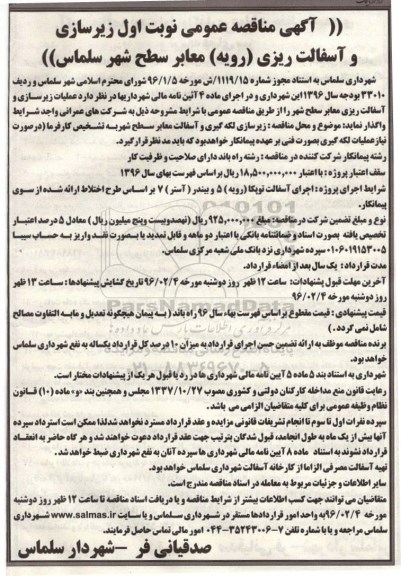 (( آگهی مناقصه عمومی نوبت اول زیرسازی
و آسفالت ریزی (رویه) معابر سطح شهر سلماس))
شهرداری سلماس به استناد مجوز شماره ۱۱۱۹/۱۵/ش مورخه ۹۶/۱/۵ شورای محترم اسلامی شهر سلماس و ردیف
۳۳۰۱۰ بودجه سال ۱۳۹۶ این شهرداری و در اجرای ماده ۴ آئین نامه مالی شهرداریها در نظر دارد عملیات زیرسازی و
آسفالت ریزی معابر سطح شهر را از طریق مناقصه عمومی با شرایط مشروحه ذیل به شرکت های عمرانی واجد شرایط
واگذار نماید: موضوع و محل مناقصه : زیرسازی لکه گیری و آسفالت معابر سطح شهر به تشخیص کارفرما (درصورت
نیاز عملیات لکه گیری بصورت فنی بر عهده پیمانکار خواهد بود که باید مد نظر قرار گیرد.
رشته پیمانکار شرکت کننده در مناقصه : رشته راه باند دارای صلاحیت و ظرفیت کار
سقف اعتبار پروژه : با اعتبار ۱۸,۵۰۰,۰۰۰,۰۰۰ ریال بر اساس فهرست بهای سال ۱۳۹۶
شرایط اجرای پروژه : اجرای آسفالت توپکا (رویه) ۵ و بیندر ( آستر) ۷ بر اساس طرح اختلاط ارائه شده از سوی
پیمانکار.
نوع و مبلغ تضمین شرکت در مناقصه: مبلغ ۹۲۵,۰۰۰,۰۰۰ ریال (نهصد و بیست و پنج میلیون ریال) معادل ۵ درصد اعتبار
تخصیص یافته بصورت اسناد و ضمانتنامه بانکی با اعتبار دو ماهه و قابل تمدید یا بصورت نقد واریز به حساب سیبا
۰۱۰۶۰۱۹۱۵۳۰۰۵ سپرده شهرداری نزد بانک ملی شعبه مرکزی سلماس.
مدت قرارداد : یک سال بعد از امضاء قرارداد.
آخرین مهلت قبول پشنهادات: ساعت ۱۲ ظهر روز دوشنبه مورخه ۹۶/۰۲/۴ تاریخ گشایش پیشنهادها : ساعت ۱۳ ظهر
روز دوشنبه مورخه ۹۶/۰۲/۴
قیمت پیشنهادی : قیمت مقطوع براساس فهرست بهاء سال ۹۶ راه باند ( به پیمان هیچگونه تعدیل و مابه التفاوت مصالح
شامل نمی گردد )
برنده مناقصه موظف به ارائه تضمین حسن اجرای قرارداد به میزان ۱۰ درصد کل قرارداد یکساله به نفع شهرداری سلماس
خواهد بود.
شهرداری به استناد بند ۵ ماده ۵ آیین نامه مالی شهرداری ها در رد یا قبول هر یک از پیشنهادات مختار است.
رعایت قانون منع مداخله کارکنان دولتی و کشوری مصوب ۱۳۳۷/۱۰/۲۷ مجلس و همچنین بند «و» ماده (۱۰) قانون
نظام وظیفه عمومی برای کلیه متقاضیان الزامی می باشد.
سپرده نفرات اول تا سوم تا انجام تشریفات قانونی مزایده و عقد قرارداد مسترد نخواهد شد لذا ممکن است استرداد سپرده
آنها بیش از یک ماه به طول انجامد، قبول شدگان بترتیب جهت عقد قرارداد دعوت خواهند شد و هر گاه حاضر به انعقاد
قرارداد نشوند به استناد ماده ۸ آیین نامه مالی شهرداری ها سپرده آنان به نفع شهرداری ضبط خواهد شد.
تهیه آسفالت مصرفی الزاما از کارخانه آسفالت شهرداری سلماس خواهد بود.
سایر اطلاعات و جزئیات مربوط به معامله در اسناد مناقصه مندرج است.
متقاضیان می توانند جهت کسب اطلاعات بیشتر از شرایط مناقصه و یا دریافت اسناد مناقصه تا ساعت ۱۲ ظهر روز دوشنبه
مورخه ۹۶/۰۲/۴ به واحد امور قراردادها مستقر در شهرداری سلماس و یا سایت www.salmas.ir شهرداری
سلماس مراجعه و یا با شماره تلفن ۷-۳۵۲۴۳۰۰۶-۰۴۴ امور مالی تماس حاصل فرمایند.
صدقیانی فر – شهردار سلماس
ParsNamadData